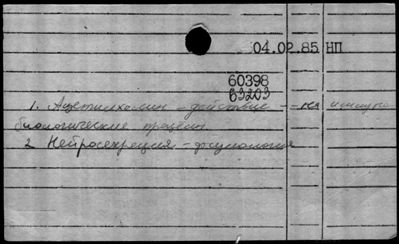 04.02.85 НП
60398
63203
1. Ацетилхолин - действие - на
биологические процессы
2 Нейросекреция - физиология